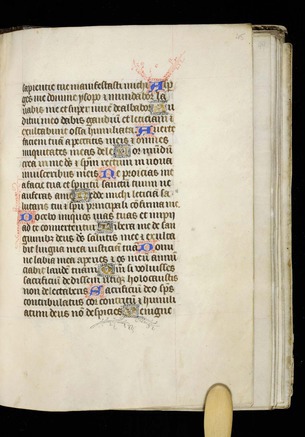 sapientie tue manifestasti michi Asp
ges me domine ysopo et mundabor la
uabis me et super niuem dealbabor Au
ditui meo dabis gaudium et leticiam et
exultabunt ossa humiliata Auerte
faciem tuam a peccatis meis et omnes
iniquitates meas dele Cor mundum
crea in me deus et spiritum rectum in noua
in uisceribus meis Ne proicias me
a facie tua et spiritum sanctum tuum ne
auferas a me Redde michi leticiam sa
lutaris tui et spiritu principali confirma me
Docebo iniquos uias tuas et impii
ad te conuertentur Libera me de san
guinibus deus deus salutis mee et exulta
bit lingua mea iusticiam tuam Domi
ne labia mea aperies et os meum annun
ciabit laudem tuam Quoniam si uoluisses
sacrificium dedissem utique holocaustis
non delectaberis Sacrificium deo spiritus
contribulatus cor contritum et humili
atum deus non despicies Benigne